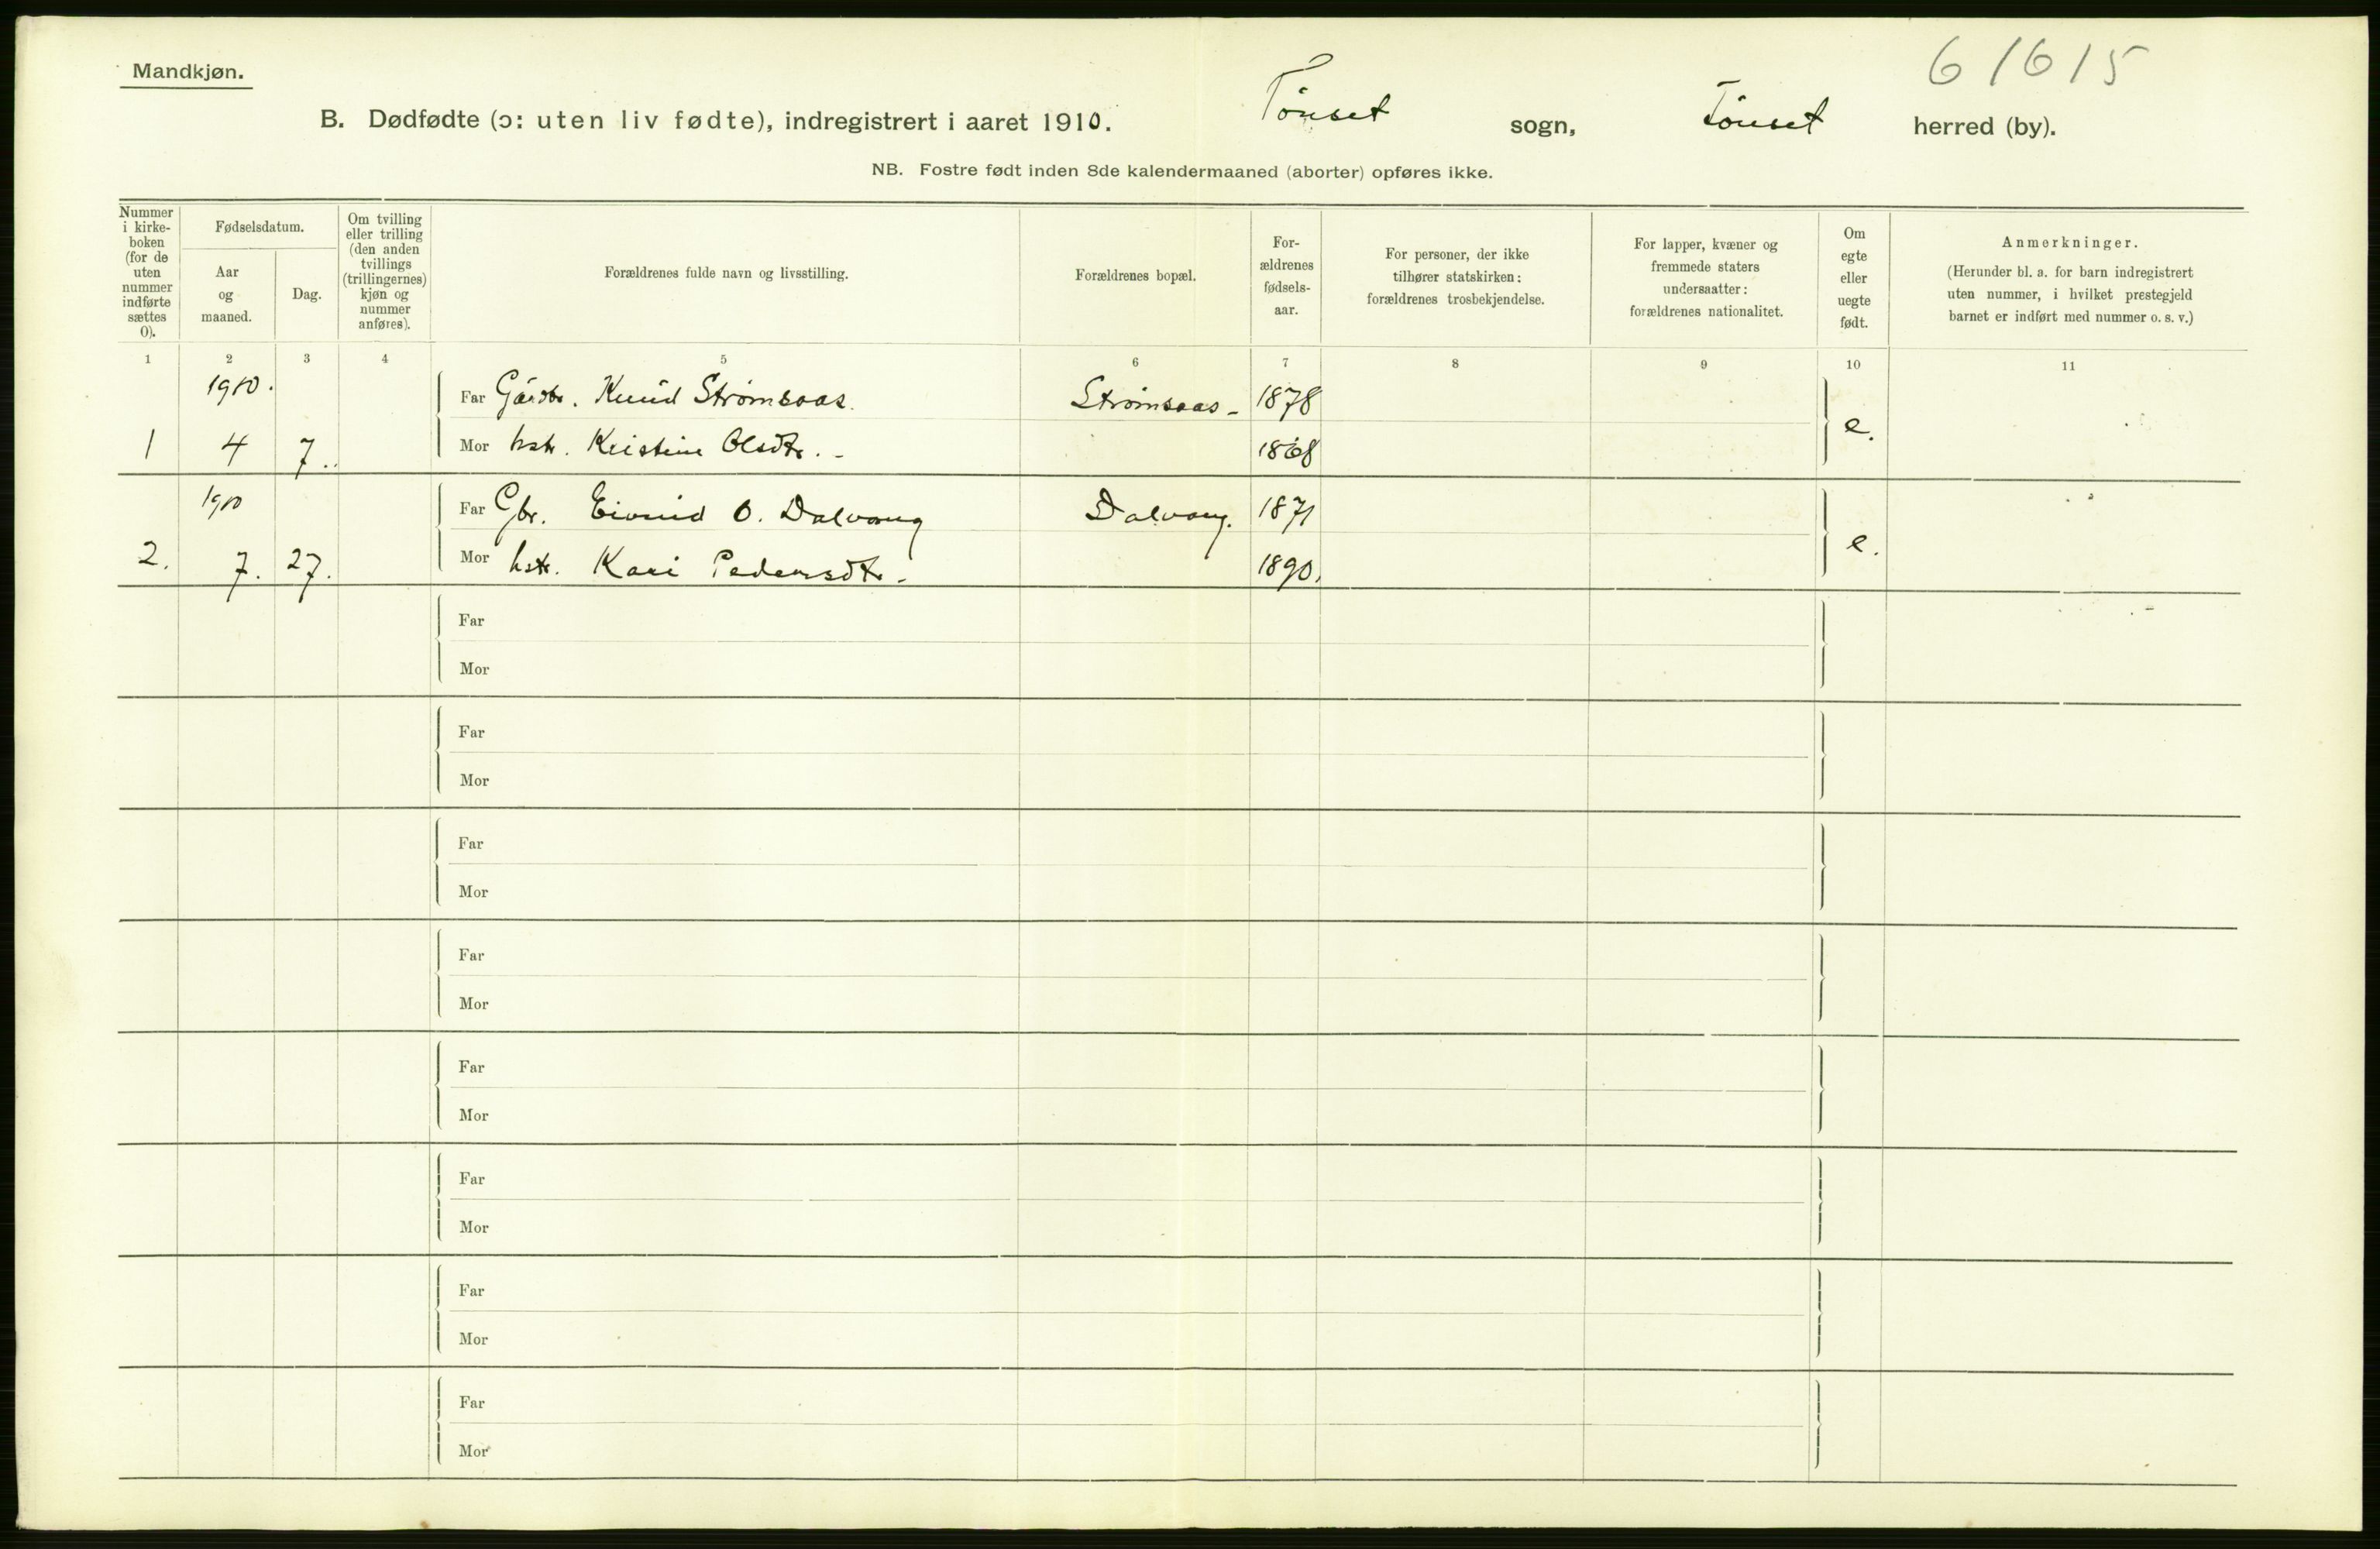 Mandkjøn.
61615
B. Dødfødte (ɔ: uten liv fødte), indregistrert i aaret 1910. Tønset sogn, Tønset herred (by).
NB. Fostre født inden 8de kalendermaaned (aborter) opføres ikke.
Nummer
i kirke-
boken
(for de
uten
nummer
indførte
sættes
0).
Fødselsdatum.
Aar
og
maaned.
Dag.
Om tvilling
eller trilling
(den anden
tvillings
(trillingernes)
kjøn og
nummer
anføres).
Forældrenes fulde navn og livsstilling.
Forældrenes bopæl.
For-
ældrenes
fødsels-
aar.
For personer, der ikke
tilhører statskirken:
forældrenes trosbekjendelse.
For lapper, kvæner og
fremmede staters
undersaatter:
forældrenes nationalitet.
Om
egte
eller
uegte
født.
Anmerkninger.
(Herunder bl. a. for barn indregistrert
uten nummer, i hvilket prestegjeld
barnet er indført med nummer o. s. v.)
1 2 3 4 5 6 7 8 9 10 11
1910. Far Gårdbr. Knud Strømsaas. Strømsaas - 1878
1 4 7. Mor hstr. Kristine Olsdtr. - 1868 e.
1910 Far Gbr. Eivind O. Dalvang Dalvang. 1871
2. 7. 27. Mor hstr. Kari Pedersdtr. - 1890. e.
Far
Mor
Far
Mor
Far
Mor
Far
Mor
Far
Mor
Far
Mor
Far
Mor
Far
Mor